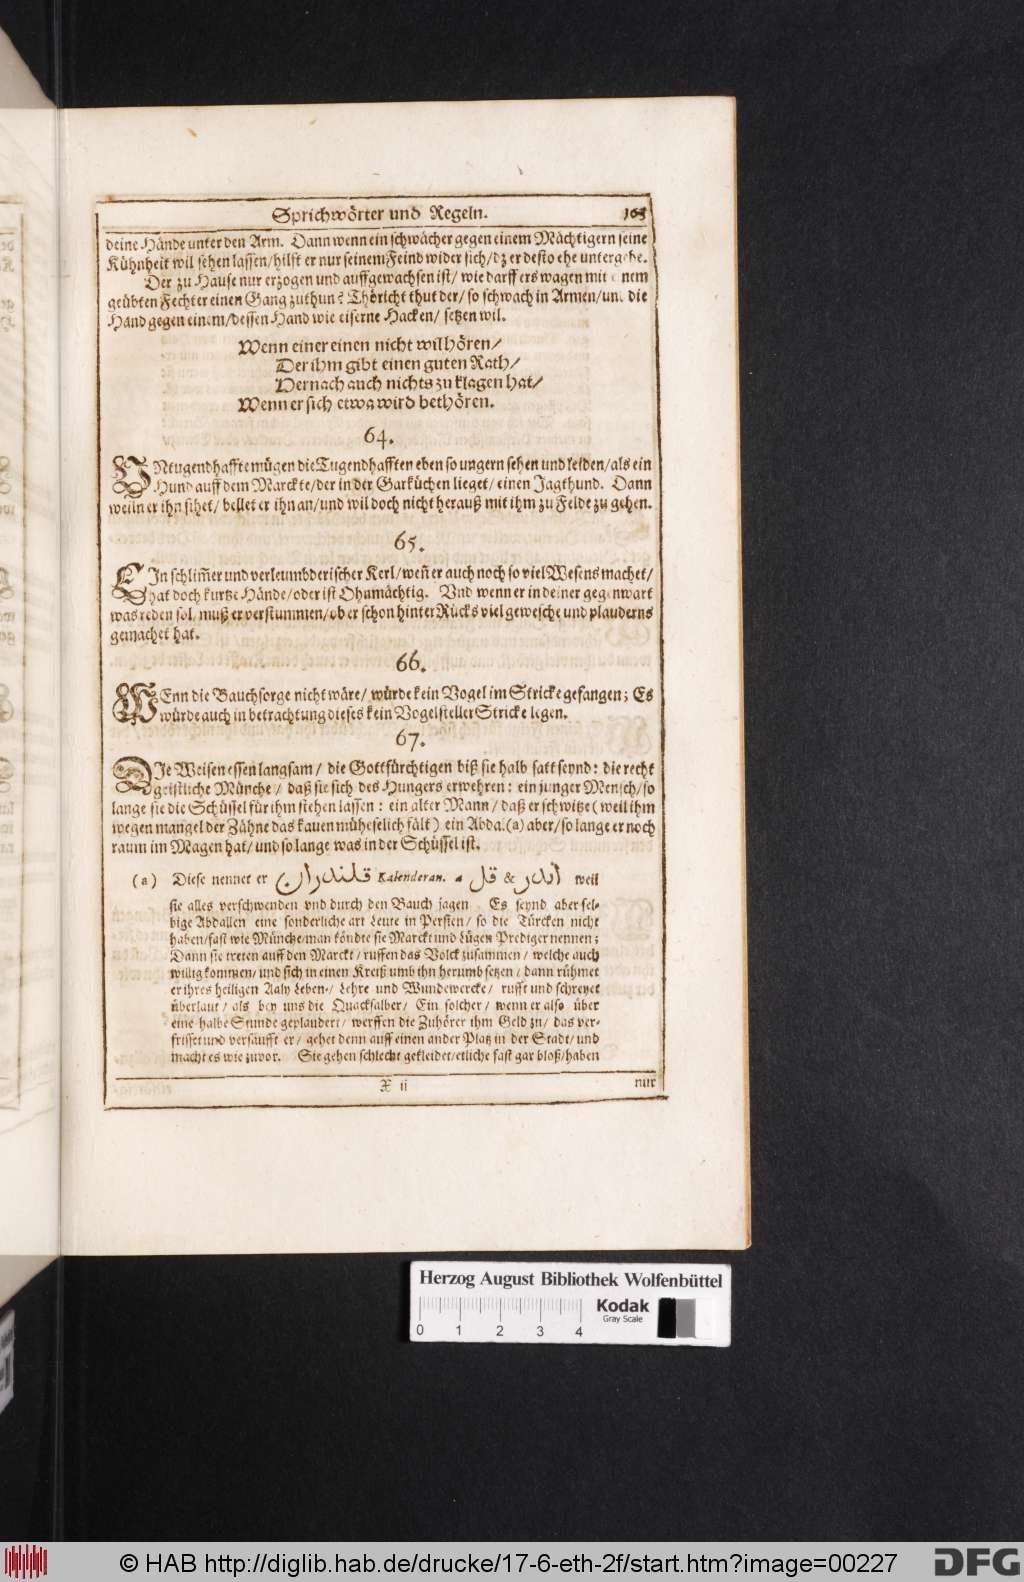 Sprichwörter und Regeln. 163
deine Hände unter den Arm. Dann wenn ein schwächer gegen einem Mächtigern seine
Kühnheit wil sehen lassen/hilft er nur seinem Feind wider sich/dz er desto ehe untergehe.
Der zu Hause nur erzogen und auffgewachsen ist/ wie darff ers wagen mit einem
geübten Fechter einen Gang zuthun? Thöricht thut der/ so schwach in Armen/und die
Hand gegen einem/dessen Hand wie eiserne Hacken/ setzen wil.
Wenn einer einen nicht wil hören/
Der ihm gibt einen guten Rath/
Hernach auch nichts zu klagen hat/
Wenn er sich etwa wird bethören.
64.
UNtugendhaffte mügen die Tugendhafften eben so ungern sehen und leiden/als ein
Hund auff dem Marckte/der in der Garküchen lieget/ einen Jagthund. Dann
wenn er ihn sihet/ bellet er ihn an/und wil doch nicht herauß mit ihm zu Felde zu gehen.
65.
EIn schlim̃er und verleumbderischer Kerl/weñ er auch noch so viel Wesens machet/
hat doch kurtze Hände/oder ist Ohnmächtig. Vnd wenn er in deiner gegenwart
was reden sol/ muß er verstummen/ob er schon hinter Rücks viel gewesche und plauderns
gemachet hat.
66.
WEnn die Bauchsorge nicht wäre/ würde kein Vogel im Stricke gefangen; Es
würde auch in betrachtung dieses kein Vogelsteller Stricke legen.
67.
DIe Weisen essen langsam/ die Gottfürchtigen biß sie halb satt seynd: die recht
geistliche Münche/ daß sie sich des Hungers erwehren: ein junger Mensch/so
lange sie die Schüssel für ihm stehen lassen: ein alter Mann/ daß er schwitze (weil ihm
wegen mangel der Zähne das kauen müheselich fält) ein Abdal (a) aber/so lange er noch
raum im Magen hat/ und so lange was in der Schüssel ist.
(a) Diese nennet er قلندران Kalenderan. a قل & اندر weil
sie alles verschwenden vnd durch den Bauch jagen. Es seynd aber sel-
bige Abdallen eine sonderliche art Leute in Persien/ so die Türcken nicht
haben/fast wie Münche/man köndte sie Marckt und Lügen Prediger nennen;
Dann sie treten auff den Marckt/ ruffen das Volck zusammen/ welche auch
willig kommen/ und sich in einen Kreiß umb ihn herumb setzen/ dann rühmet
er ihres heiligen Aaly Leben/ Lehre und Wundewercke/ rufft und schreyet
überlaut/ als bey uns die Quacksalber/ Ein solcher/ wenn er also über
eine halbe Stunde geplaudert/ werffen die Zuhörer ihm Geld zu/ das ver-
frisset und versäufft er/ gehet denn auff einen ander Platz in der Stadt/ und
macht es wie zuvor. Sie gehen schlecht gekleidet/etliche fast gar bloß/haben
X ii nur
Herzog August Bibliothek Wolfenbüttel
0 1 2 3 4 Kodak
Gray Scale
© HAB http://diglib.hab.de/drucke/17-6-eth-2f/start.htm?image=00227 DFG